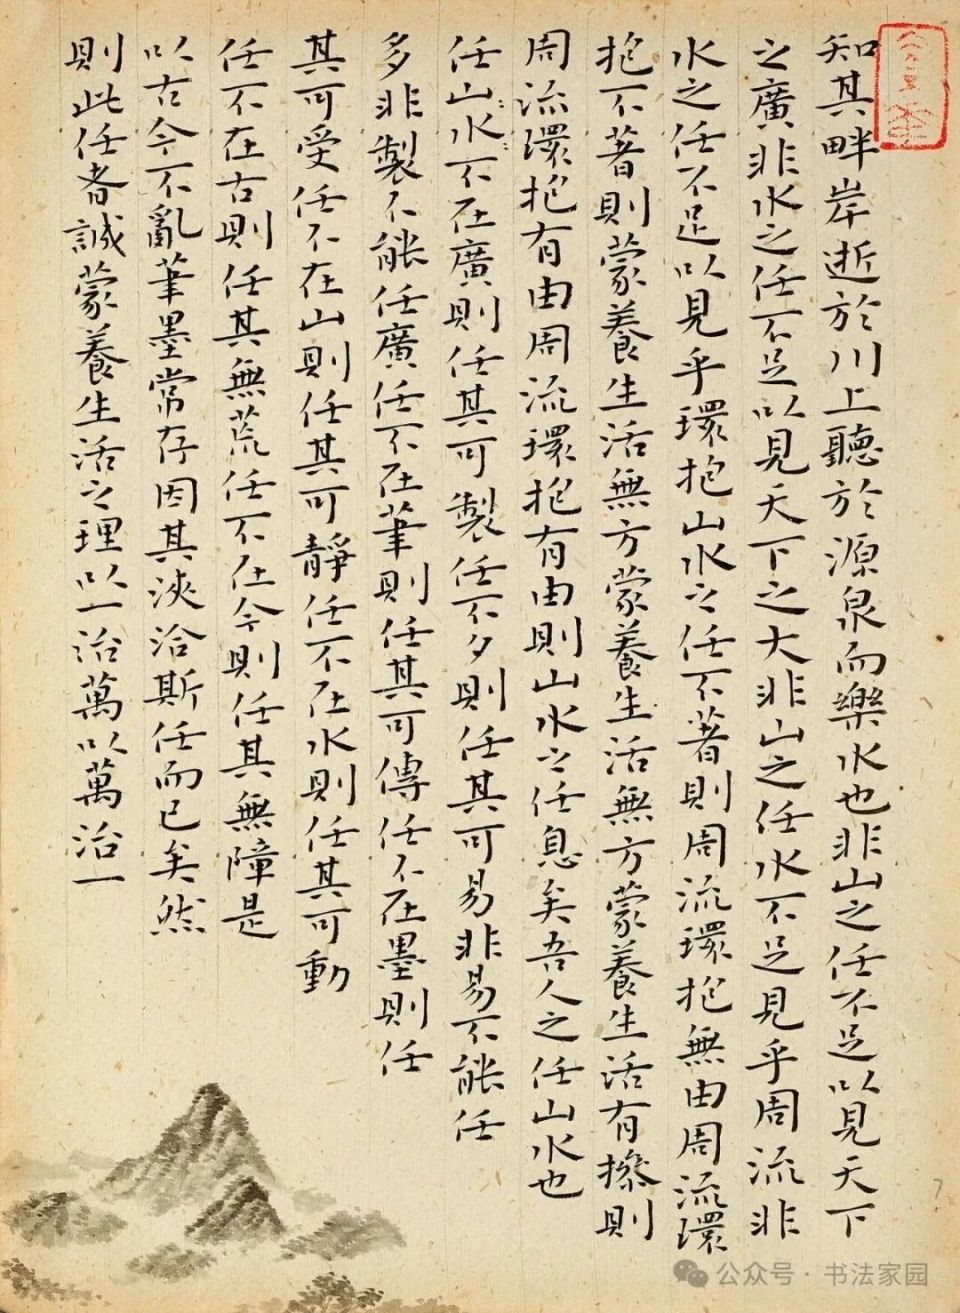 知其畔岸逝於川上聽於源泉而樂水也非山之任不足以見天下
之廣非水之任不足以見天下之大非山之任水不足見乎周流非
水之任不足以見乎環抱山水之任不著則周流環抱無由周流環
抱不著則蒙養生活無方蒙養生活無方蒙養生活有操則
周流環抱有由周流環抱有由則山水之任息矣吾人之任山水也
任山水不在廣則任其可製任不夕則任其可易非易不能任
多非製不能任廣任不在筆則任其可傳任不在墨則任
其可受任不在山則任其可靜任不在水則任其可動
任不在古則任其無荒任不在今則任其無障是
以古今不亂筆墨常存因其浹洽斯任而已矣然
則此任者誠蒙養生活之理以一治萬以萬治一
7
公众号·书法家园